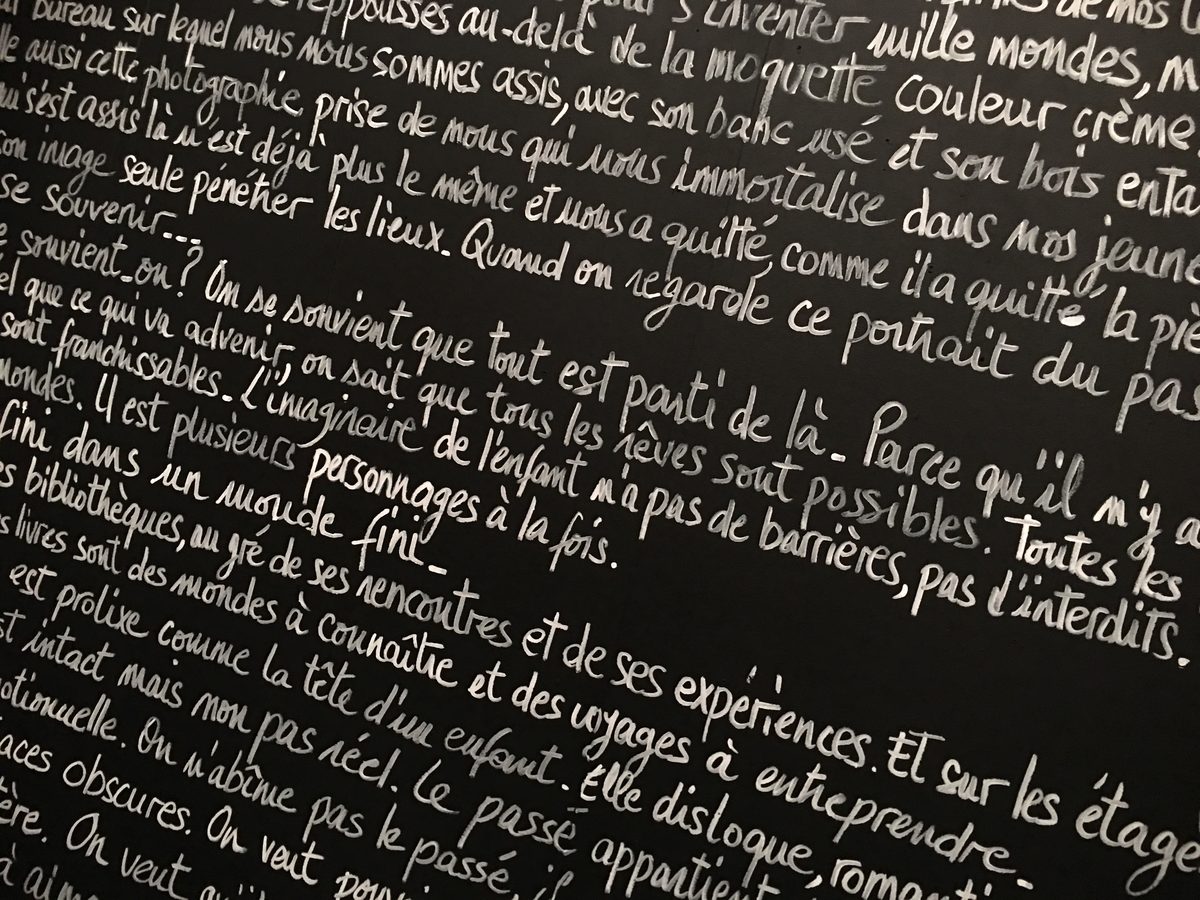 de mos
pour s'inventer mille mondes, m
reppoussés au-delà de la moquette couleur crème.
bureau sur lequel nous nous sommes assis, avec son banc usé et son bois enta
lle aussi cette photographie prise de nous qui nous immortalise dans nos jeune
ui s'est assis là n'est déjà plus le même et nous a quitté, comme il a quitté la piè
son image seule pénétrer les lieux. Quand on regarde ce portrait du pas
se souvenir...
e souvient-on ? On se souvient que tout est parti de là. Parce qu'il n'y a
el que ce qui va advenir, on sait que tous les rêves sont possibles. Toutes les
sont franchissables. L'imaginaire de l'enfant n'a pas de barrières, pas d'interdits.
mondes. Il est plusieurs personnages à la fois.
fini dans un monde fini.
s bibliothèques, au gré de ses rencontres et de ses expériences. Et sur les étage
s livres sont des mondes à connaître et des voyages à entreprendre.
est prolixe comme la tête d'un enfant. Elle disloque, romanti
st intact mais non pas réel. Le passé appartient
otionnelle. On n'abîme pas le passé, il
aces obscures. On veut
ère. On veut qu'il
à